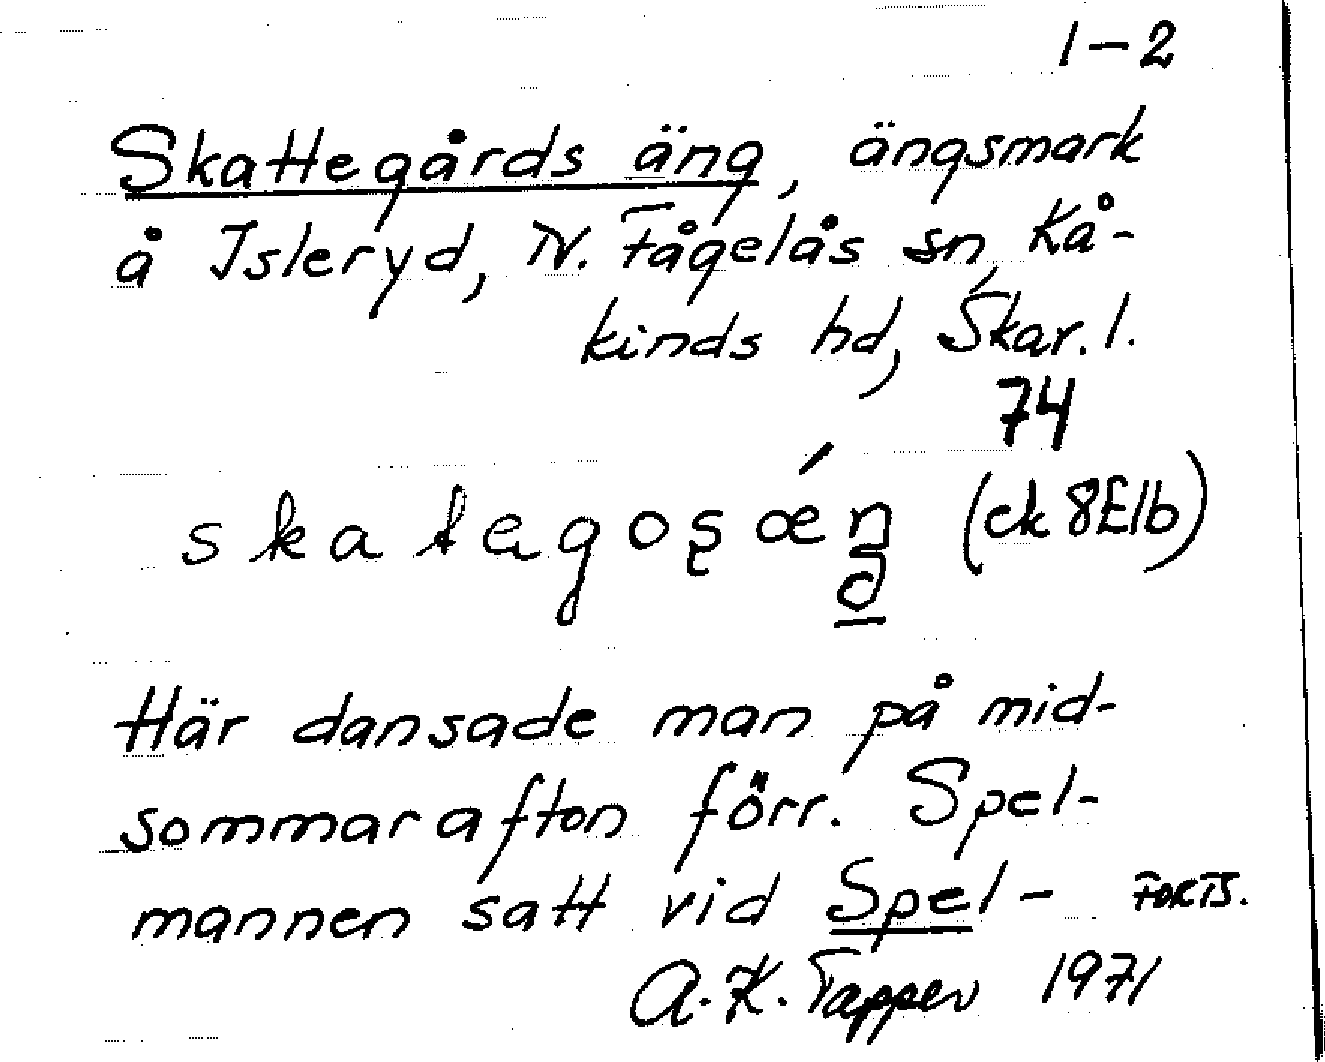 1-2
Skattegårds äng, ängsmark
å Isleryd, N. Fågelås sn, Kå-
kinds hd, Skar. l.
74
(ek 8E1b)
Här dansade man på mid-
sommarafton förr. Spel-
mannen satt vid Spel-
FORTS.
A.K. Tapper 1971